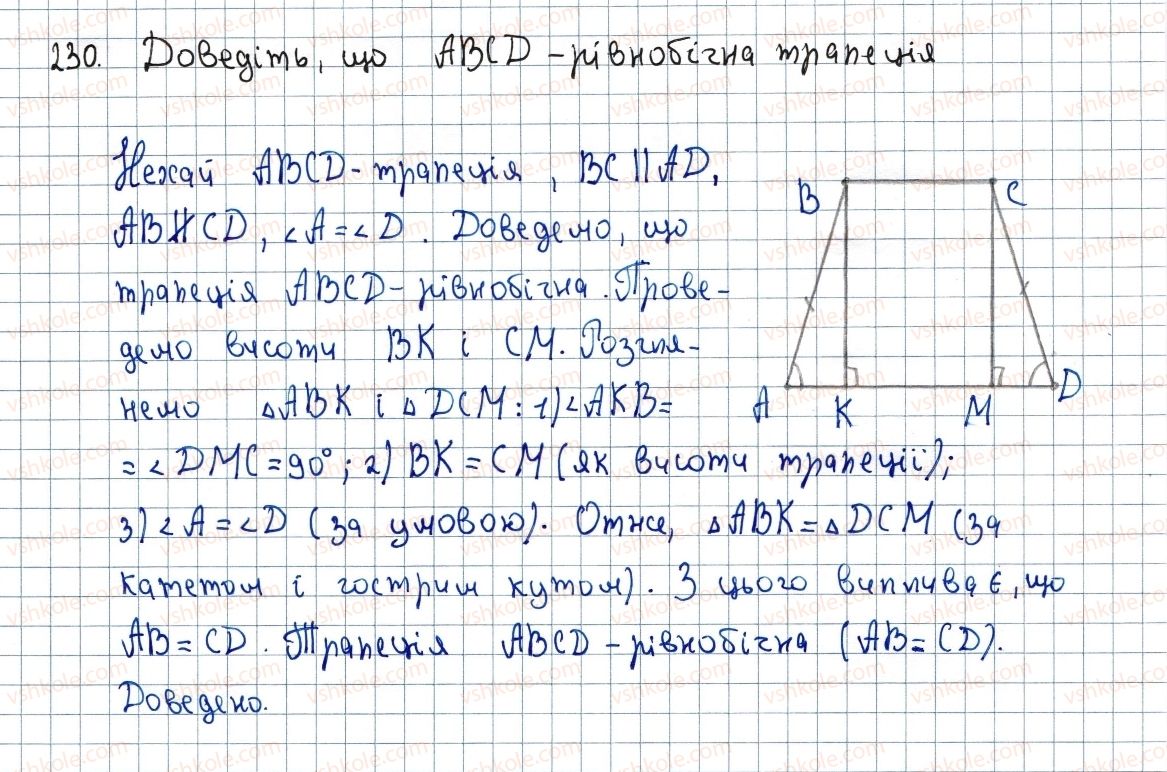 230. Доведіть, що ABCD – рівнобічна трапеція
Нехай ABCD - трапеція, BC || AD,
AB ∦ CD, ∠A = ∠D. Доведемо, що
трапеція ABCD - рівнобічна. Прове-
демо висоти BK і CM. Розгля-
немо △ABK і △DCM: 1) ∠AKB =
= ∠DMC = 90°; 2) BK = CM (як висоти трапеції);
3) ∠A = ∠D (за умовою). Отже, △ABK = △DCM (за
катетом і гострим кутом). З цього випливає, що
AB = CD. Трапеція ABCD – рівнобічна (AB = CD).
Доведено.
B C
A K M D
vshkole.com